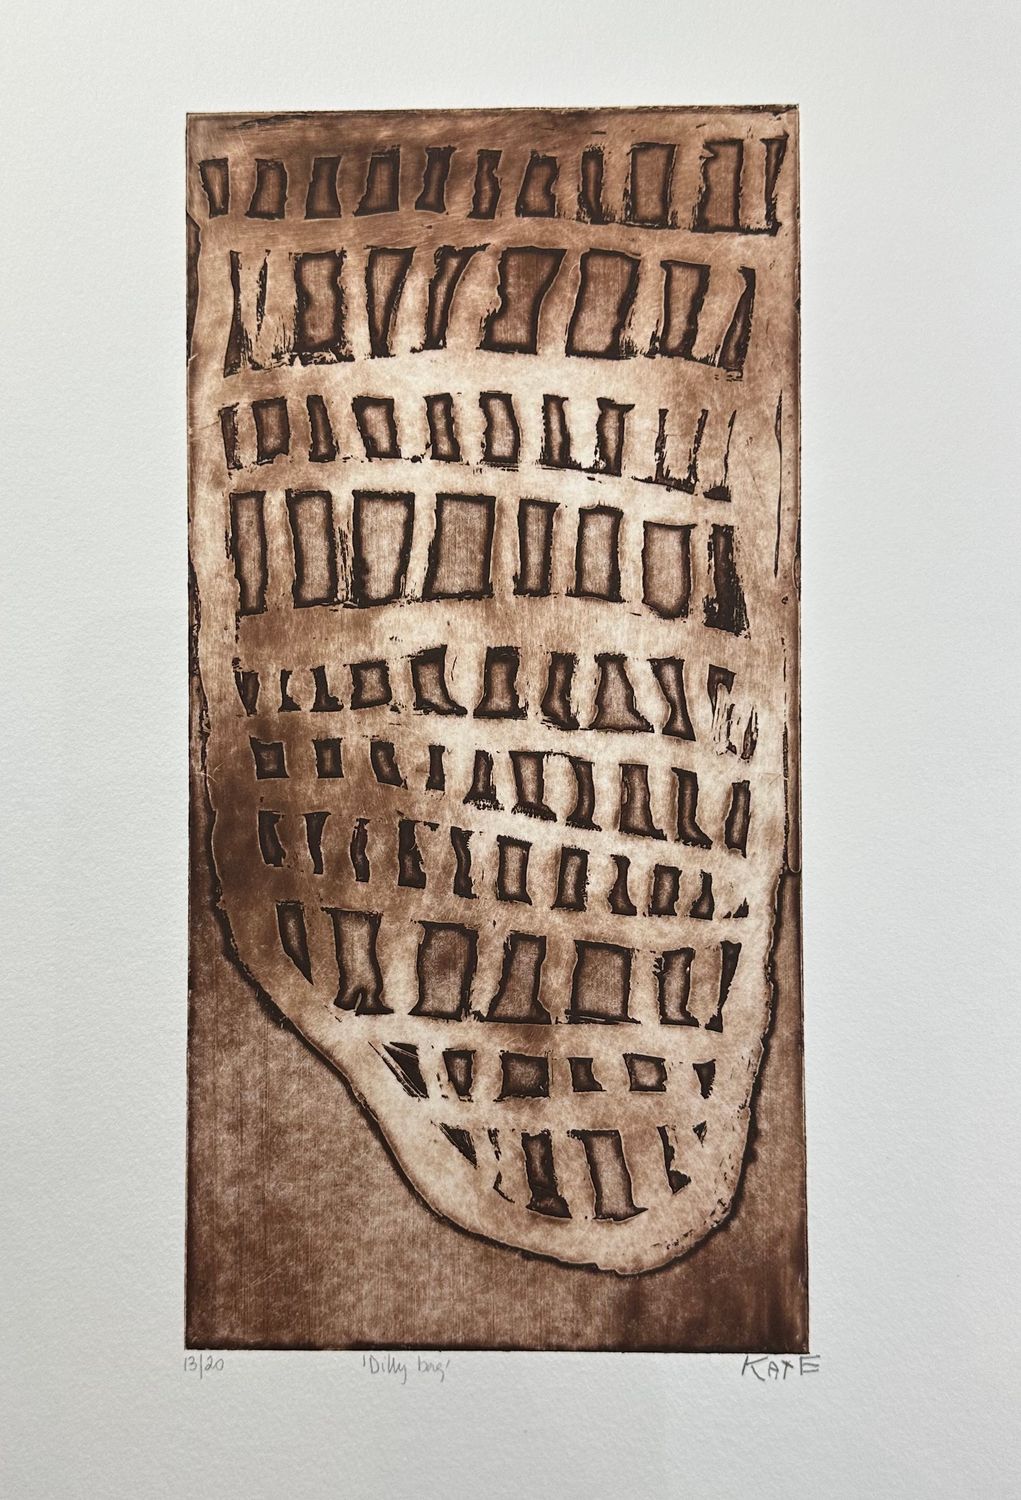 13/20 'Dilly bag' KATE